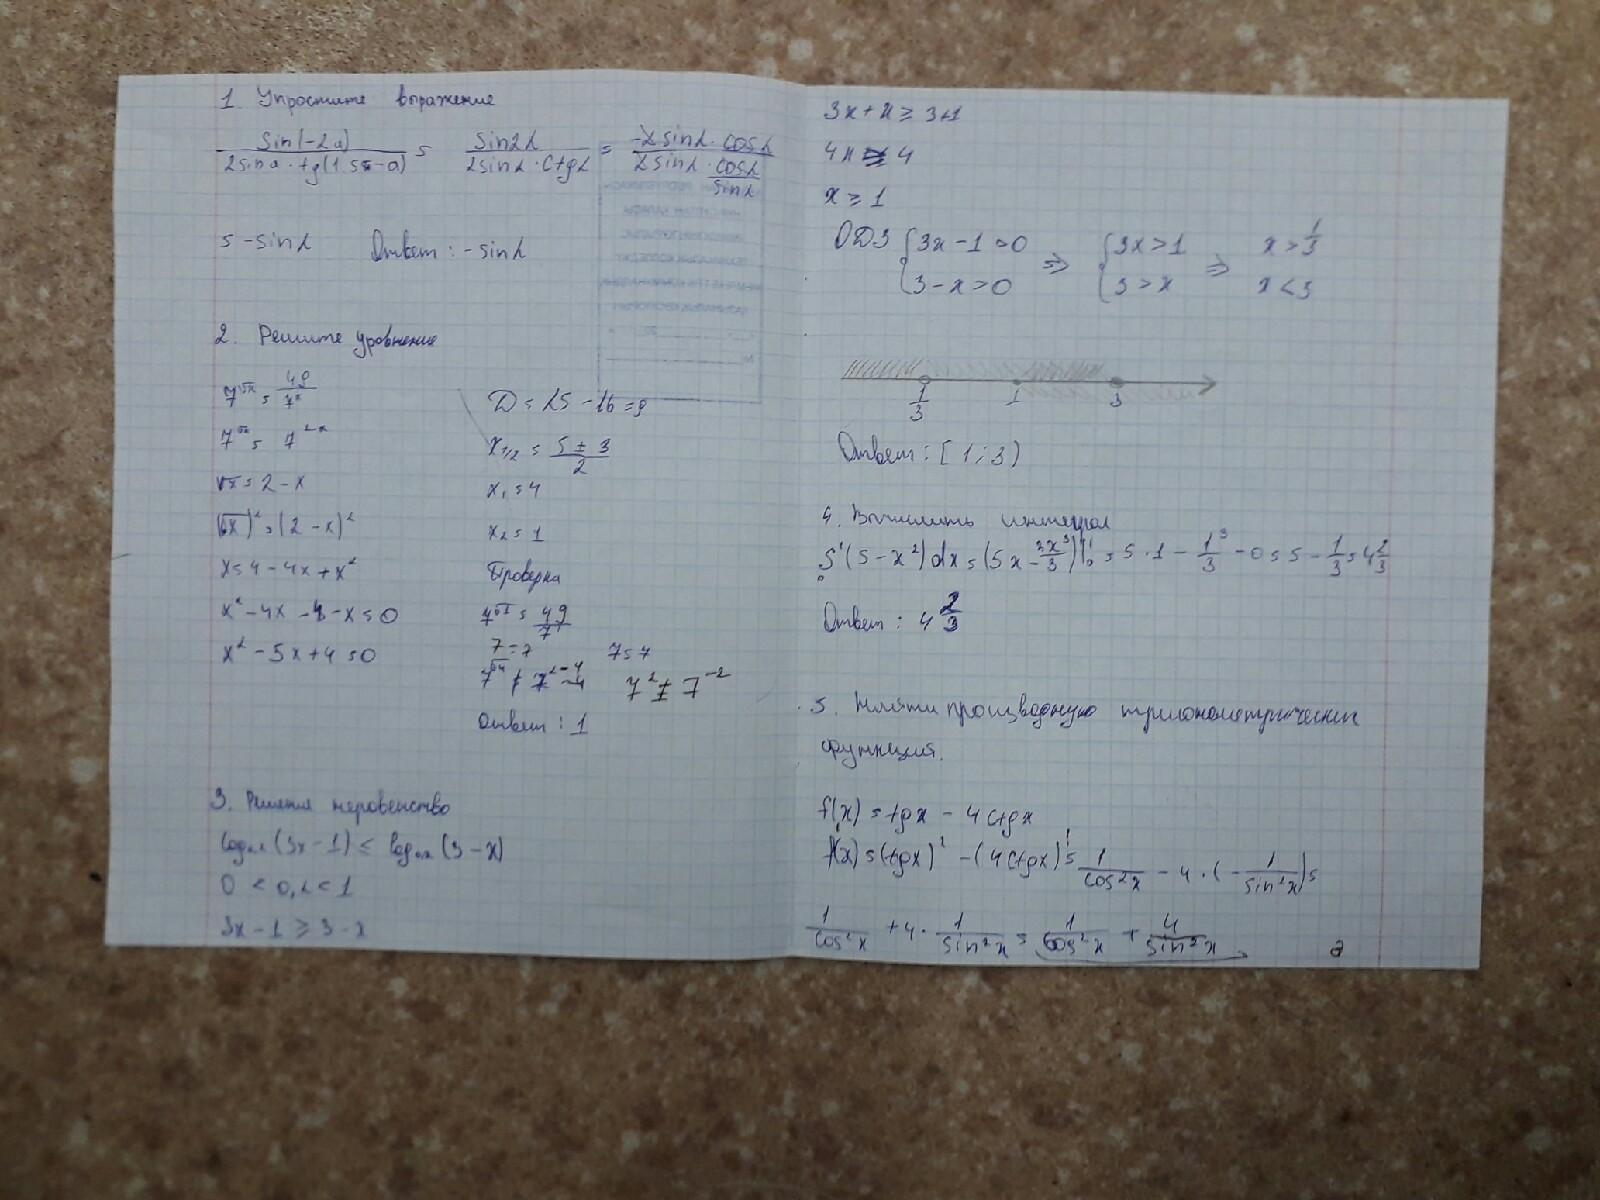 1. Упростите выражение
sin(-2a) / 2sina · tg(1.5π-a) = sin2α / 2sinα · ctgα = -2sinα · cosα / 2sinα · cosα/sinα
= -sinα Ответ: -sinα
2. Решите уровнение
7^√x = 49/7^x
7^√x = 7^2-x
√x = 2 - x
(√x)² = (2 - x)²
x = 4 - 4x + x²
x² - 4x - 4 - x = 0
x² - 5x + 4 = 0
D = 25 - 16 = 9
x1/2 = 5 ± 3 / 2
x1 = 4
x2 = 1
Проверка
7^√1 = 49/7^1
7 = 7 7 = 7
7^√4 ≠ 7^2-4 7² ≠ 7^-2
Ответ: 1
3. Решите неровенство
log0,2 (3x - 1) ≤ log0,2 (3 - x)
0 < 0,2 < 1
3x - 1 ≥ 3 - x
3x + x ≥ 3+1
4x ≥ 4
x ≥ 1
ОДЗ { 3x - 1 > 0 ⇒ { 3x > 1 ⇒ x > 1/3
3 - x > 0 3 > x x < 3
1/3 1 3
Ответ: [1; 3)
4. Вычислить интеграл
∫₀¹ (5 - x²) dx = (5x - x³/3)|₀¹ = 5 · 1 - 1³/3 - 0 = 5 - 1/3 = 4 2/3
Ответ: 4 2/3
5. Найти производную тригонометрических
функций.
f(x) = tgx - 4ctgx
f'(x) = (tgx)' - (4ctgx)' = 1/cos²x - 4 · (- 1/sin²x) =
1/cos²x + 4 · 1/sin²x = 1/cos²x + 4/sin²x